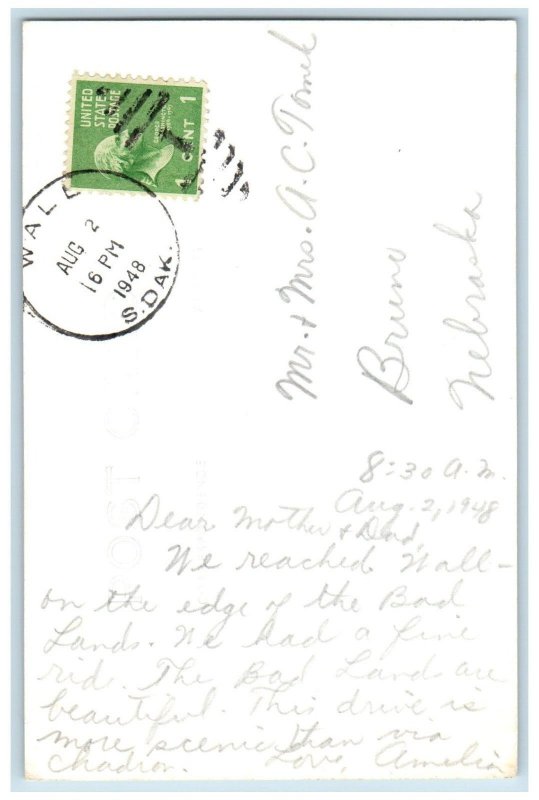 UNITED
STATES
POSTAGE
1 CENT 1
WALL
AUG 2
16 PM
1948
S. DAK.
Mr. & Mrs. A. C. Tomek
Bruno
Nebraska
POST
8:30 A.M.
Aug. 2, 1948
Dear Mother & Dad,
We reached Wall-
on the edge of the Bad
Lands. We had a fine
ride. The Bad Lands are
beautiful. This drive is
more scenic than via
Chadron. Love, Amelia